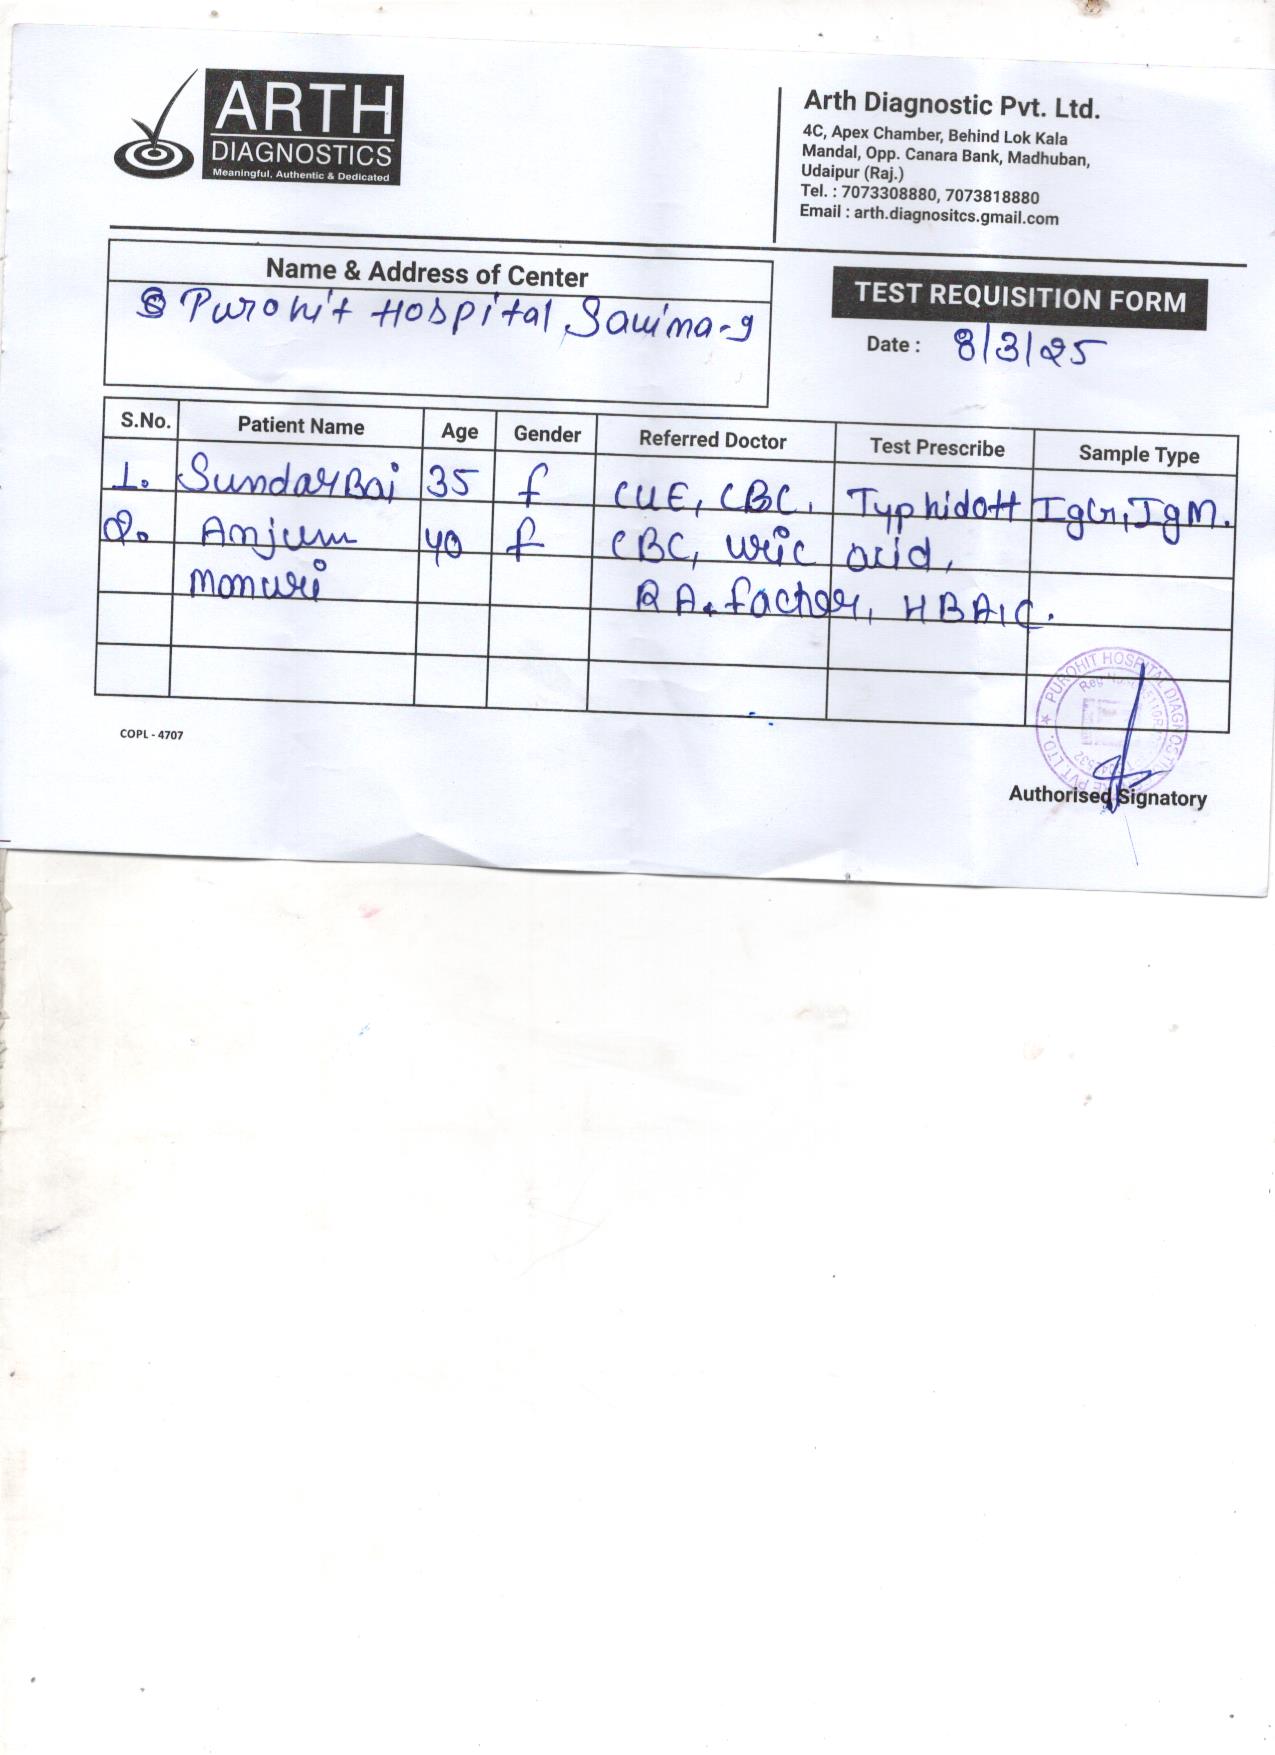 ARTH
DIAGNOSTICS
Meaningful, Authentic & Dedicated
Arth Diagnostic Pvt. Ltd.
4C, Apex Chamber, Behind Lok Kala
Mandal, Opp. Canara Bank, Madhuban,
Udaipur (Raj.)
Tel. : 7073308880, 7073818880
Email : arth.diagnositcs.gmail.com
Name & Address of Center
Purohit Hospital Savina-9
TEST REQUISITION FORM
Date : 8/3/25
S.No. Patient Name Age Gender Referred Doctor Test Prescribe Sample Type
1. Sundar Bai 35 f CUE, CBC, Typhidott IgG, IgM.
2. Anjum 40 f CBC, uric acid,
RA. factor, HBA1C.
PUROHIT HOSPITAL DIAGNOSTIC PVT. LTD.
COPL - 4707
Authorised Signatory